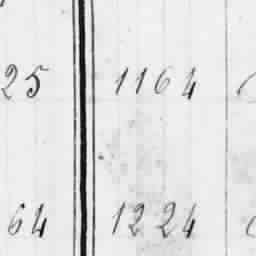 25 1164
64 1224